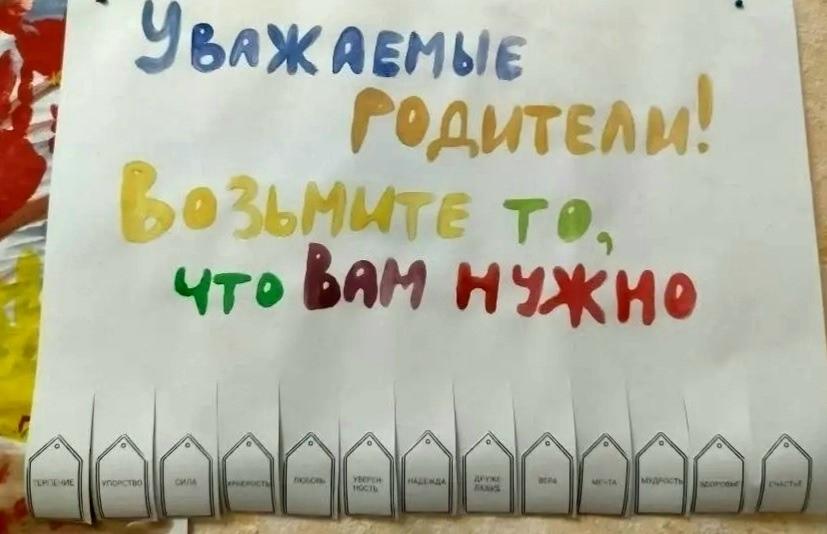 Уважаемые
родители!
Возьмите то,
что вам нужно
ТЕРПЕНИЕ
УПОРСТВО
СИЛА
ХРАБРОСТЬ
ЛЮБОВЬ
УВЕРЕН-
НОСТЬ
НАДЕЖДА
ВЕРА
МЕЧТА
МУДРОСТЬ
ЗДОРОВЬЕ
СЧАСТЬЕ